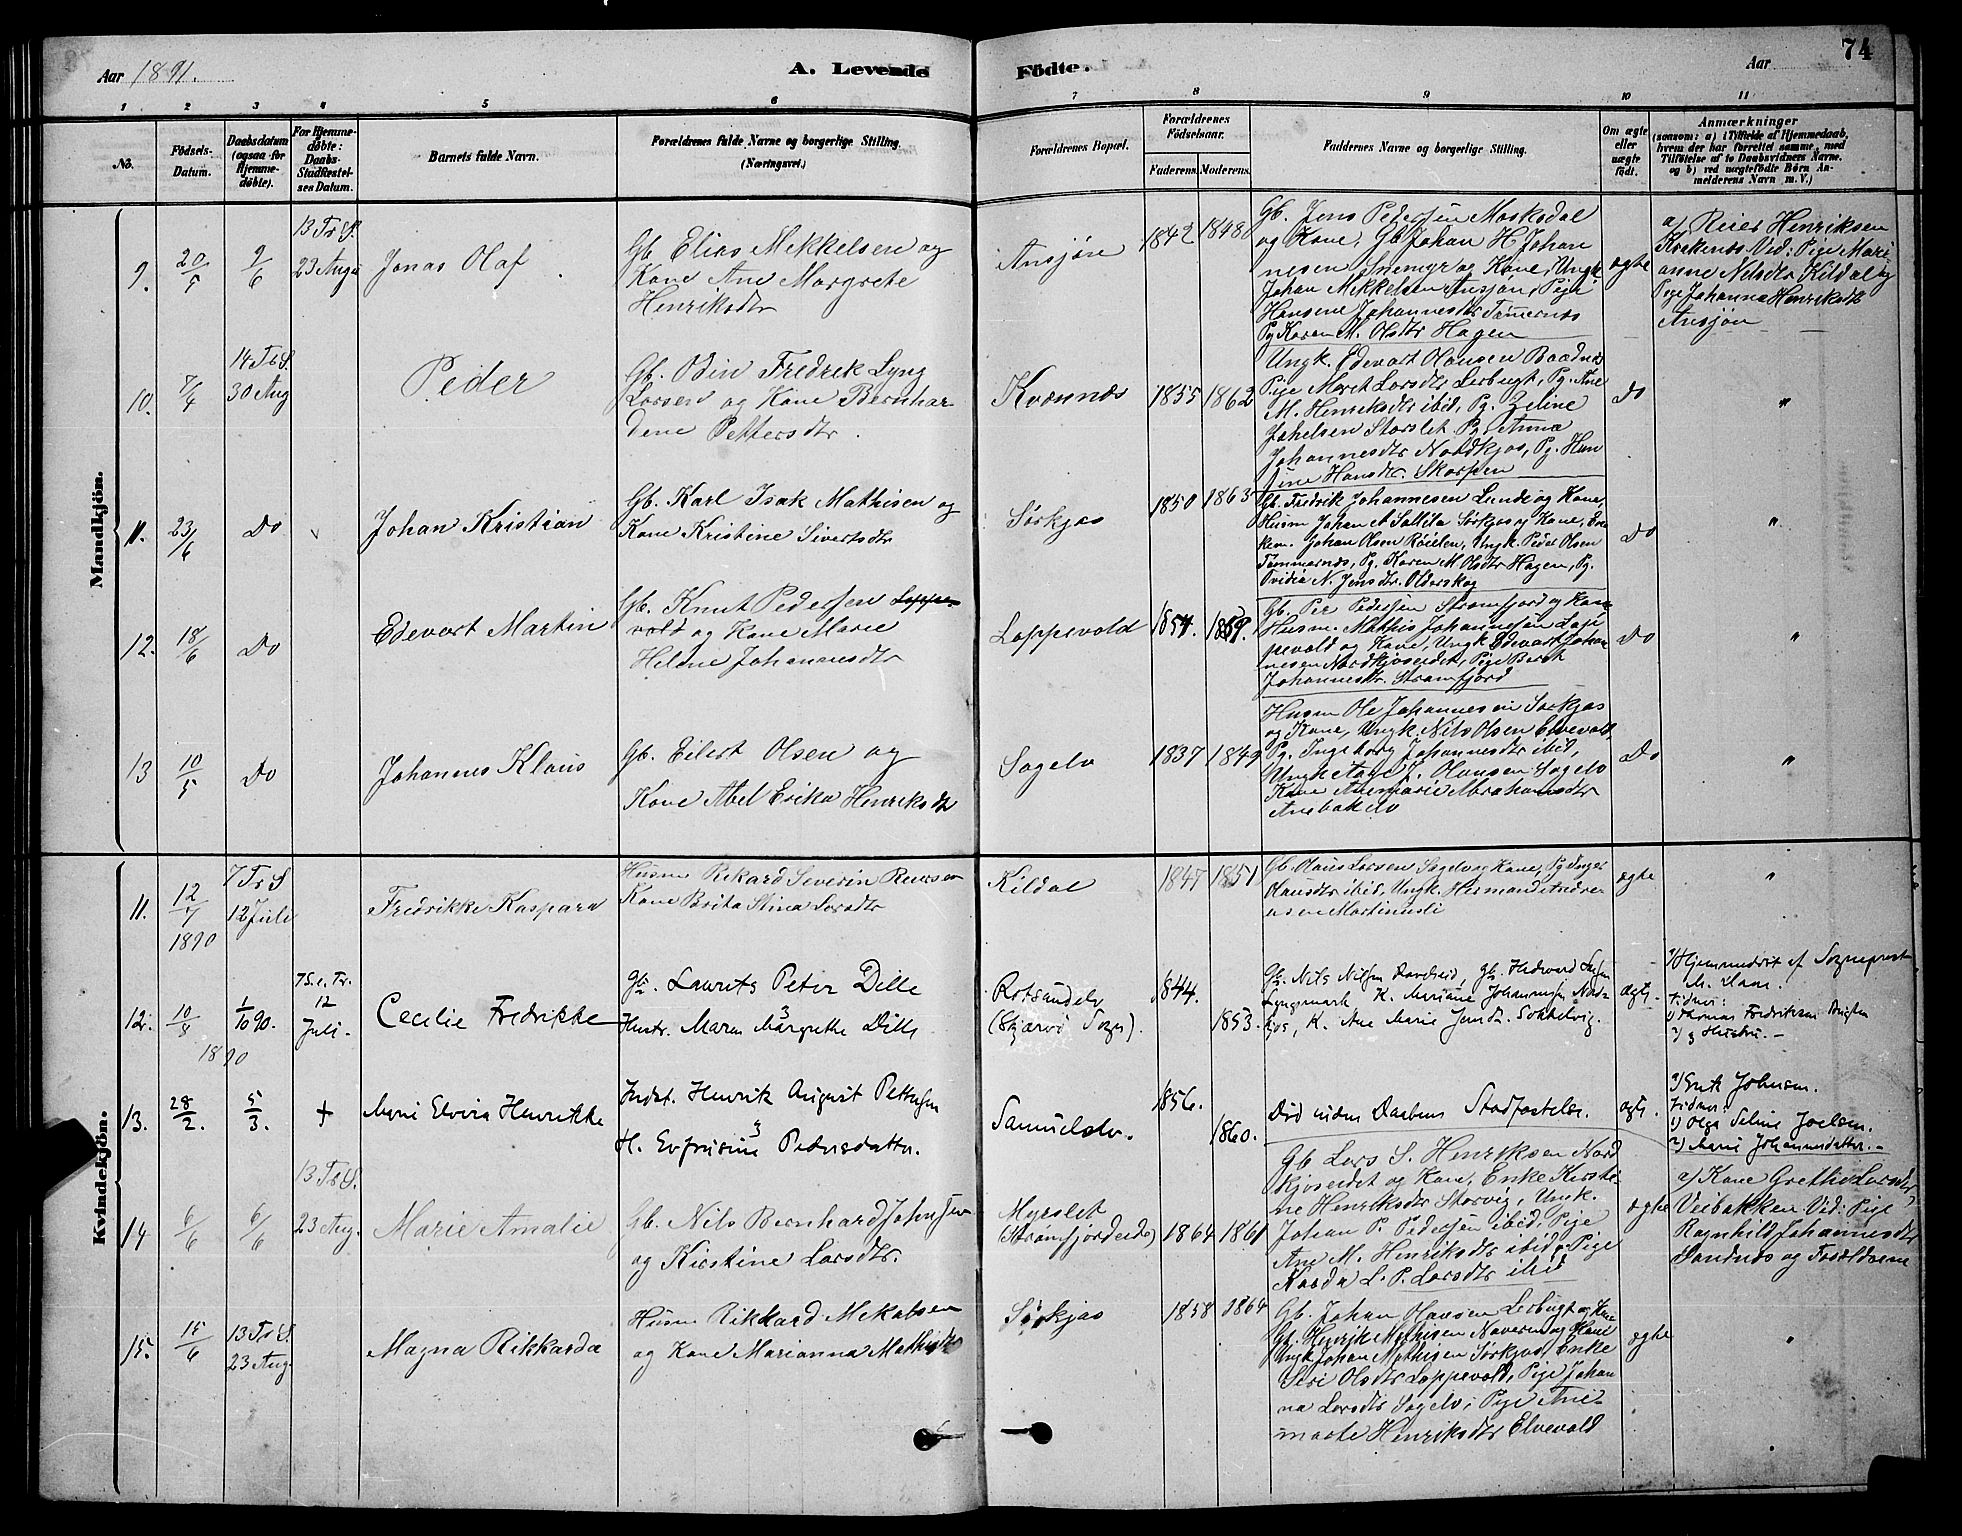 Aar 1891.
A. Levende Födte.
Aar
74
1 2 3 4 5 6 7 8 9 10 11
No.
Födsels-Datum.
Daabsdatum (ogsaa for Hjemme-döbte).
For Hjemme-döbte: Daabs-Stadfæstel-ses Datum.
Barnets fulde Navn.
Forældrenes fulde Navne og borgerlige Stilling. (Næringsvei.)
Forældrenes Bopæl.
Forældrenes Födselsaar.
Faderens. Moderens.
Faddernes Navne og borgerlige Stilling.
Om ægte eller uægte födt.
Anmærkninger
(saasom: a) i Tilfælde af Hjemmedaab,
hvem der har forrettet samme, med
Tilföielse af to Daabsvidners Navne.
og b) ved uægtefödte Börn An-
melderens Navn m. V.)
Mandkjön.
9.
20/5
9/6
13 Tr S.
23 Aug
Jonas Olaf
Gb. Elias Mikkelsen og
Kone Ane Margrete
Henriksdtr
Ansjøn
1842 1848
Gb. Jens Pedersen Maskedal
og Kone, Gb Johan H Johan
nesen Snemyr og Kone, Ungk
Johan Mikkelsen Ansjøn, Pige
Hansine Johannesdtr Tømernæs
Pg Karen M. Olsdtr Hagen
ægte
a) Reier Henriksen
Vid: Pige Mari-
anne Nilsdtr Kildal og
Pige Johanna Henriksdtr
Ansjøn
10.
7/4
14 Tr S.
30 Aug
Peder
Gb. Odin Fredrek Lyng
Larsen og Kone Bernhar-
dene Pettersdtr.
Kvænnæs
1855 1862
Ungk. Edevart Hansen
Pige Maret Larsdtr Leebugt, Pg. Ane
M. Henriksdtr ibid, Pg. Zeline
Johelsen Storslet. Pg Anna
Johannesdtr Nordkjos, Pg. Han
sine Hansdtr. Skarpen
Do
"
11.
23/6
Do
Johan Kristian
Gb. Karl Isak Mathisen og
Kone Kristine Sivertsdtr
Sørkjos
1850 1863
Gb. Fredrik Johannesen Lunde og Kone,
Husm Johan A Salkila Sørkjos og Kone, En
kem. Johan Olsen Røielen, Ungk. Peder Olsen
Tømmernæs, Pg. Karen M Olsdtr Hagen, Pg.
N. Jensdtr. Olderskog
Do
"
12.
18/6
Do
Edevart Martin
Gb. Knut Pedersen Loppe-
vold og Kone Marie
Helene Johannesdtr
Loppevold
1854. 1859.
Gb. Per Pedersen Strømfjord og Kone
Husm. Mathis Johannesen Lop
pevold og Kone, Ungk Edevart Johan
nesen Nordkjoseidet, Pige Beret
Johannesdtr. Strømfjord
Do
"
13
10/5
Do
Johannes Klaus
Gb. Eilert Olsen og
Kone Abel Erika Henriksdtr
Sagelv
1837 1849
Husm Ole Johannesen Sørkjos
og Kone, Ungk. Nils Olsen Elvevold,
Pg. Ingeborg Johannesdtr ibid,
Ungk J. Hansen Sagelv
Kone Anemarie Abrahamsdtr
Do
"
Kvindekjön.
11.
12/7
1890
7 Tr S
12 Juli
Fredrikke Kaspara
Husm Rikard Severin
Kone Brita Stina Larsdtr
Kildal
1847 1851
Gb. Hans Larsen Sagelv og Kone, Pg
Hansdtr ibid, Ungk. Hermand Andrea
sen Martinusli
ægte
"
12.
10/8
1890
1/10 90.
7 S. e. Tr.
12
Juli.
Cecilie Fredrikke
Gb. Laurits Peter Dille
Hustr. Maren Margrethe Dille
Rotsundelv
(Skjærvö Sogn).
1844.
1853.
Gb. Nils Nilsen
Lyngsmark K. Mariane Johannesen Nord-
kjos, K. Ane Marie Jensdr. Sokkelvig.
ægte.
a) Hjemmedöbt af Sogneprest
Vidner:
1) Thomas Fredriksen
2) og Hustru.
13.
28/2.
5/3.
+
Marie Elvira Henrikke
Indst. Henrik August Pettersen
H. Eufrusine Pedersdatter.
Samuelelv.
1856.
1860.
Död inden Daabens Stadfæstelse.
ægte.
a) Erik Johnsen.
Vidner:
1) Olga Seline Joelsen.
2) Marie Johannesdatter.
14
6/6
6/6
13 Tr S.
23 Aug.
Marie Amalie
Gb. Nils Bernhard Johnsen
og Kirstine Larsdtr.
Myrslet
(Strømfjordeide)
1864 1861
Gb Lars S. Henriksen Nord
kjoseidet og Kone, Enke Kirsti-
ne Henriksdtr Storvig, Ungk.
Johan P. Pedersen ibid, Pige
Ane M. Henriksdtr ibid, Pige
L. P. Larsdtr ibid
ægte
a) Kone Grethe Larsdtr
Veibakken Vid: Pige
Ragnhild Johannesdtr
Sandnæs og Forældrene
15.
15/6
13 Tr S.
23 Aug.
Magna Rikkarda
Husm Rikkard Mekalsen
og Kone Marianna Mathisdtr
Sørkjos
1858 1864
Gb. Johan Hansen Leebugt og Kone
Gb. Henrik Mathisen Naveren og Kone
Ungk Johan Mathisen Sørkjos, Enke
Seri Olsdtr Loppevold, Pige Johan
na Larsdtr Sagelv, Pige Ane-
marte Henriksdtr Elvevold
ægte
"